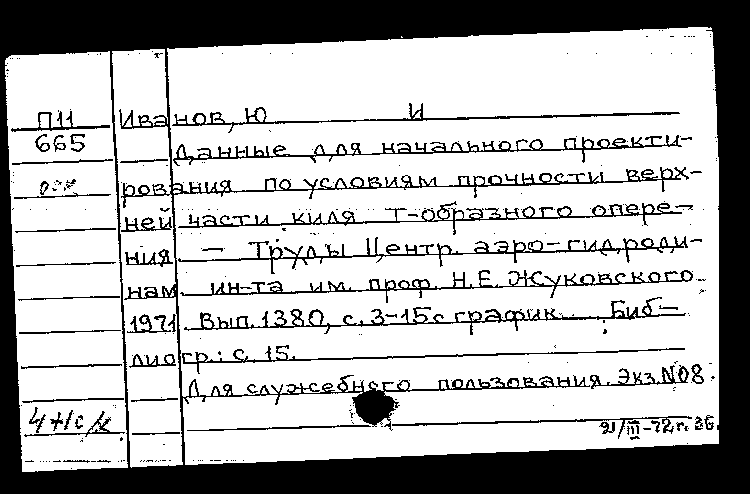 П11 Иванов, Ю И
665 Данные для начального проекти-
рования по условиям прочности верх-
ней части киля Т-образного опере-
ния. — Труды Центр. аэро-гидроди-
нам. ин-та им. проф. Н.Е. Жуковского
1971. Вып. 1380, с. 3-15 с график. Биб-
лиогр.: с. 15.
Для служебного пользования. Экз. №08.
21/III-72 г. 36.